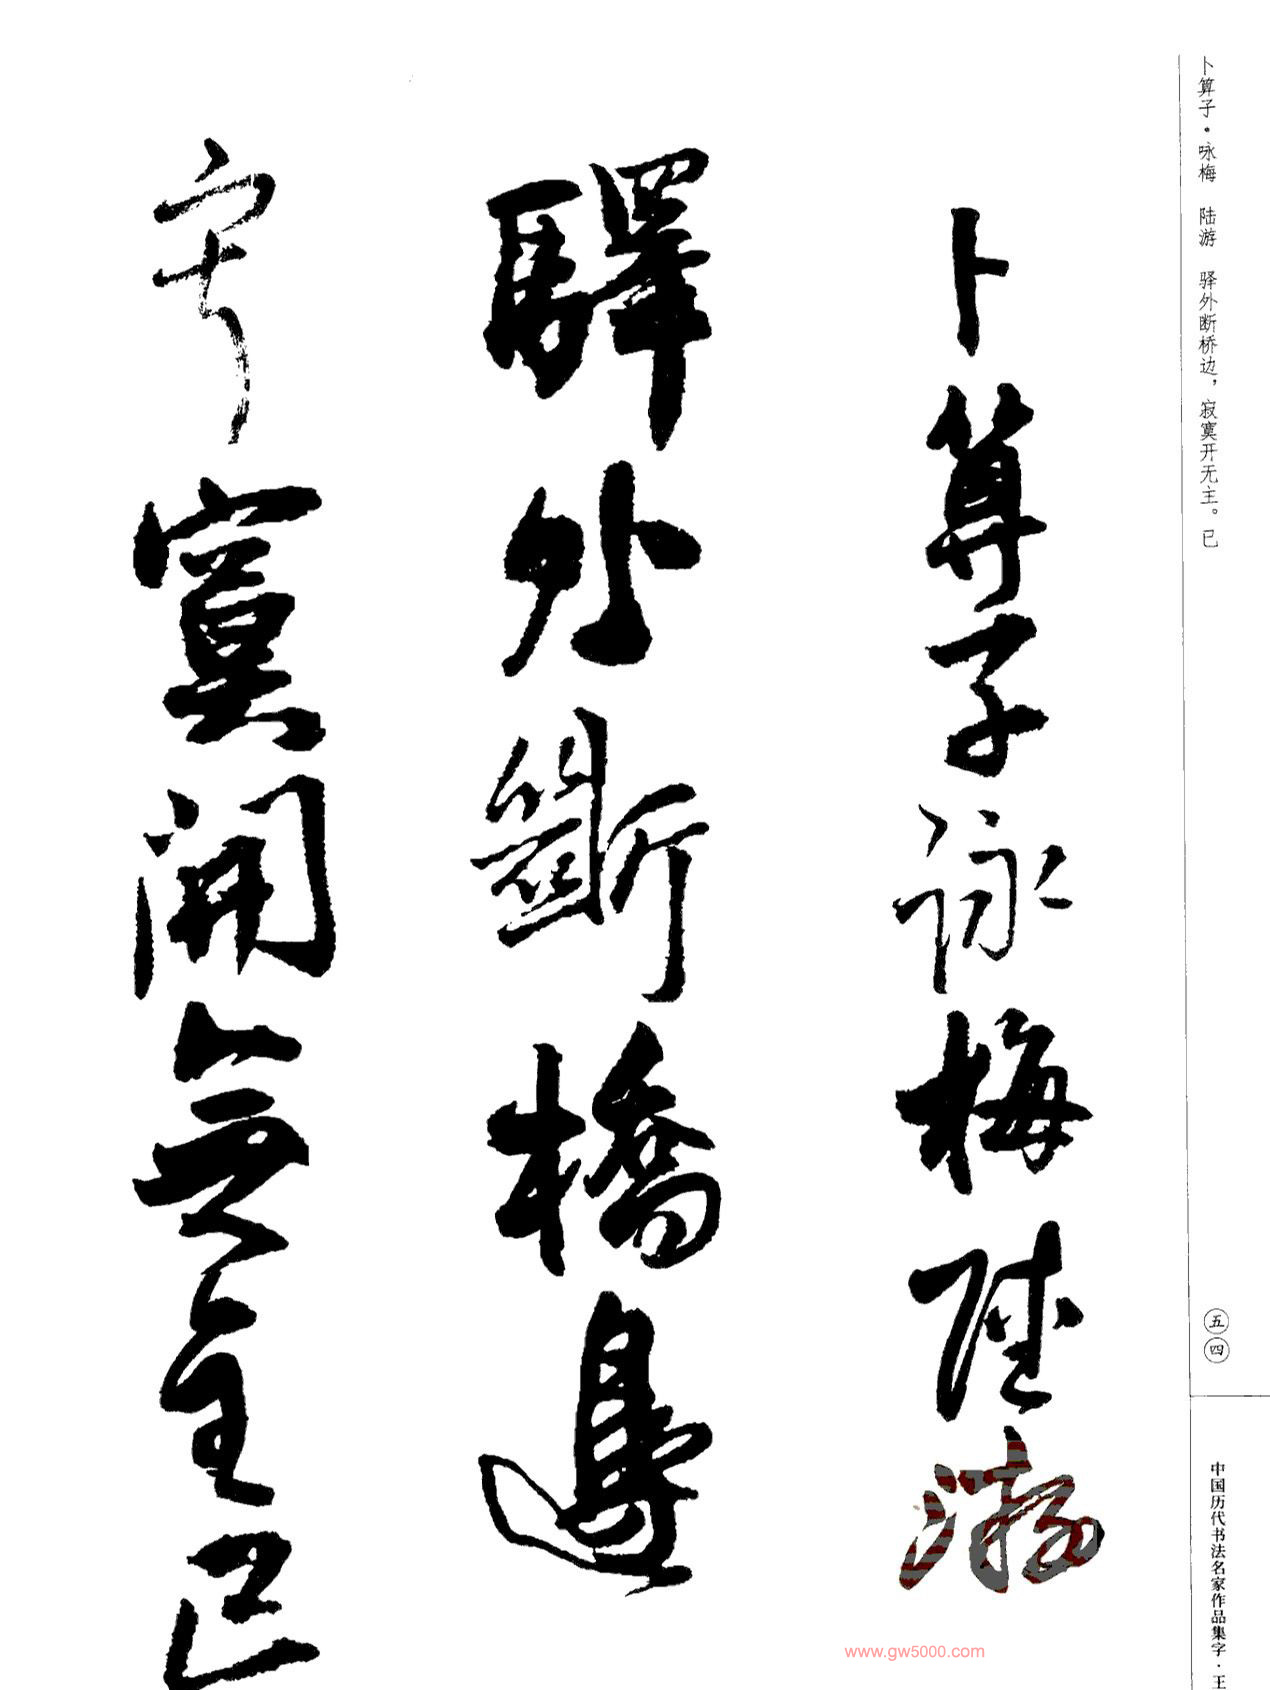 卜算子·咏梅 陆游 驿外断桥边，寂寞开无主。已
卜算子詠梅陸游
驛外斷橋邊
寂寞開無主已
五四
中国历代书法名家作品集字·王
www.gw5000.com